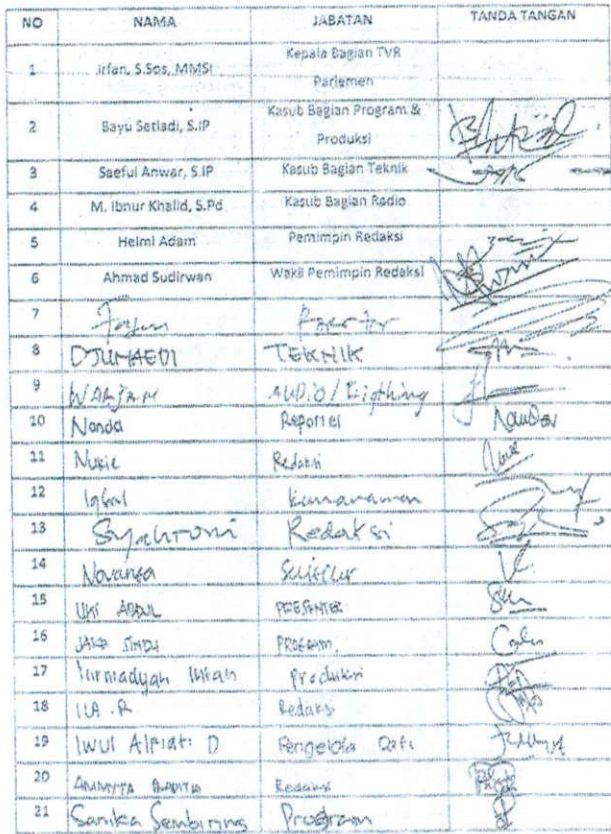 NO NAMA JABATAN TANDA TANGAN
1 Irfan, S.Sos, MMSI Kepala Bagian TVR Parlemen
2 Bayu Setiadi, S.IP Kasub Bagian Program & Produksi
3 Saeful Anwar, S.IP Kasub Bagian Teknik
4 M. Ibnur Khalid, S.Pd Kasub Bagian Radio
5 Helmi Adam Pemimpin Redaksi
6 Ahmad Sudirwan Wakil Pemimpin Redaksi
7
8 DJUNAEDI TEKNIK
9 WARJAN AUDIO/Ligthing
10 Nanda Reporter
11 Redaksi
12 Iqbal Kamaramen
13 Syahroni Redaksi
14 Novansa
15 UKI PRESENTER
16 JAKA PROGRAM.
17 Produksi
18 Redaksi
19 IWUL D Pengelola Data
20 Redaksi
21 Sanika Sembiring Program